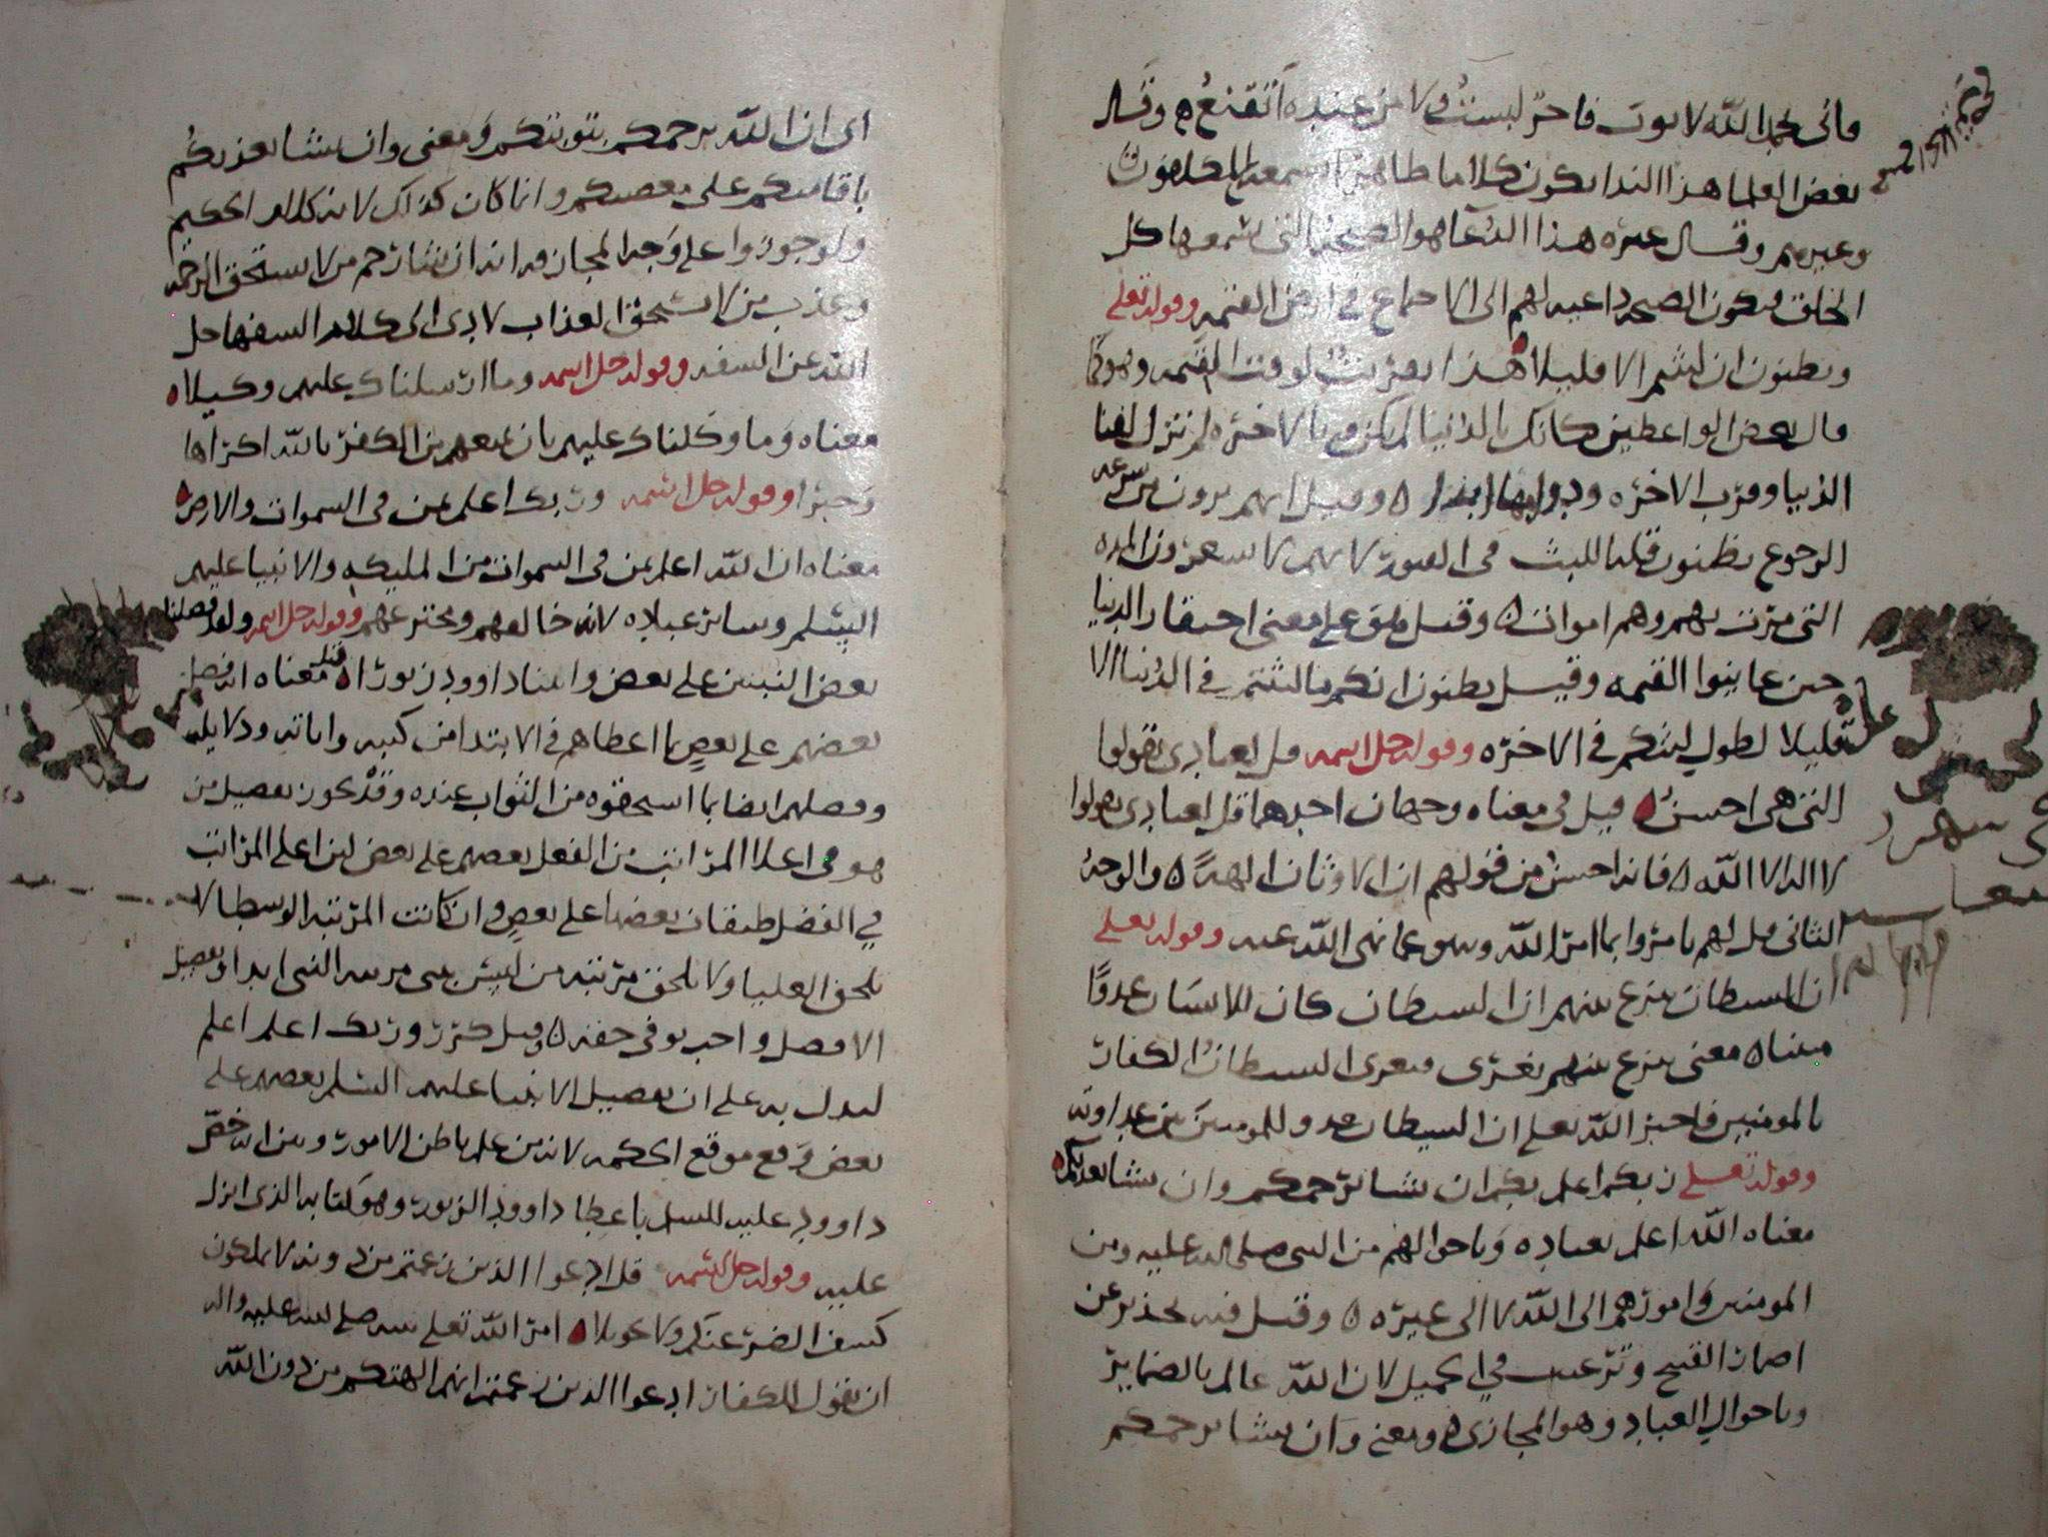 فاني بحمد الله لا ثوب فاجر لبست ولا من غدرة أتقنع ه وقال
بعض العلما هذا الندا يكون كلاما ظاهرا يسمعه المكلفون
وغيرهم وقال غيره هذا الدعا هو الصيحة التي يسمعها كل
الخلق فتكون الصيحة داعية لهم الى الاجتماع في ارض القيمة وقوله تعلى
وتظنون ان لبثتم الا قليلا هذا تقريب لوقت القيمة وهو كما
قال بعض الواعظين كانك بالدنيا لم تكن وبالاخرة لم تزل لفنا
الدنيا وقرب الاخرة ودوامها ابدا ه وقيل انهم يرون من سرعة
الرجوع يظنون قلة اللبث في القبور لانهم لا يشعرون المدة
التي مرت بهم وهم اموات ه وقيل على معنى احتقار الدنيا
حين عاينوا القيمة وقيل تظنون انكم ما لبثتم في الدنيا الا
قليلا لطول لبثكم في الاخرة وقوله جل اسمه قل لعبادي يقولوا
التي هي احسن ه قيل في معناه وجهان احدهما قل لعبادي يقولوا
لا اله الا الله ه فانه احسن من قولهم ان الاوثان الهة ه والوجه
الثاني قل لهم يامروا بما امر الله وينهو عما نهى الله عنه وقوله تعلى
ان الشيطان ينزغ بينهم ان الشيطان كان للانسان عدوا
مبينا ه معنى ينزغ بينهم يغري فيغري الشيطان الكفار
بالمومنين فاخبر الله تعلى ان الشيطان عدو للمومنين بين عداوته
وقوله تعلى ربكم اعلم بكم ان يشا يرحمكم وان يشا يعذبكم ه
معناه الله اعلم بعباده وباحوالهم من النبي صلى الله عليه ومن
المومنين وامورهم الى الله لا الى غيره ه وقيل فيه تحذير عن
اضمار القبيح وترغيب في الجميل لان الله عالم بالضماير
وباحوال العباد وهو المجازي ه ومعنى وان يشا يرحمكم
اي ان الله يرحمكم بتوبتكم ومعنى وان يشا يعذبكم
باقامتكم على معصيتكم وانما كان كذلك لانه كلام الحكيم
ولو جوزوا على وجه المجاز فيه انه ان يشا رحم من لا يستحق الرحمة
وعذب من لا يستحق العذاب لادى الى كلام السفها جل
الله عن السفه وقوله جل اسمه وما ارسلناك عليهم وكيلا ه
معناه وما وكلناك عليهم بان تمنعهم من الكفر بالله اكراها
وجبرا وقوله جل اسمه وربك اعلم بمن في السموات والارض ه
معناه ان الله اعلم بمن في السموات من المليكة والانبيا عليهم
السلم وساير عباده لانه خالقهم ومخترعهم وقوله جل اسمه ولقد فضلنا
بعض النبيين على بعض واتينا داوود زبورا ه قيل معناه انه فضل
بعضهم على بعض بما اعطاهم في الابتدا من كتبه واياته ودلايله
وفضلهم ايضا بما استحقوه من الثواب عنده وقد يكون تفضيل من
هو في اعلا المراتب من الفضل بعضهم على بعض لان اعلى المراتب
في الفضل طبقات بعضها على بعض وان كانت المرتبة الوسطى لا
تلحق العليا ولا تلحق مرتبة من ليس بنبي مرتبة النبي ابدا وتفضيل
الافضل واجب توفي حقه ه وقيل كرر وربك اعلم اعلم
ليدل به على ان تفضيل الانبيا عليهم السلم بعضهم على
بعض وقع موقع الحكمة لانه من علم باطن الامور وبين انه خص
داوود عليه السلم باعطا داوود الزبور وهو كتابه الذي انزل
عليه وقوله جل اسمه قل ادعوا الذين زعمتم من دونه لا يملكون
كشف الضر عنكم ولا تحويلا ه امر الله تعلى نبيه صلى الله عليه واله
ان يقول للكفار ادعوا الذين زعمتم انهم الهتكم من دون الله